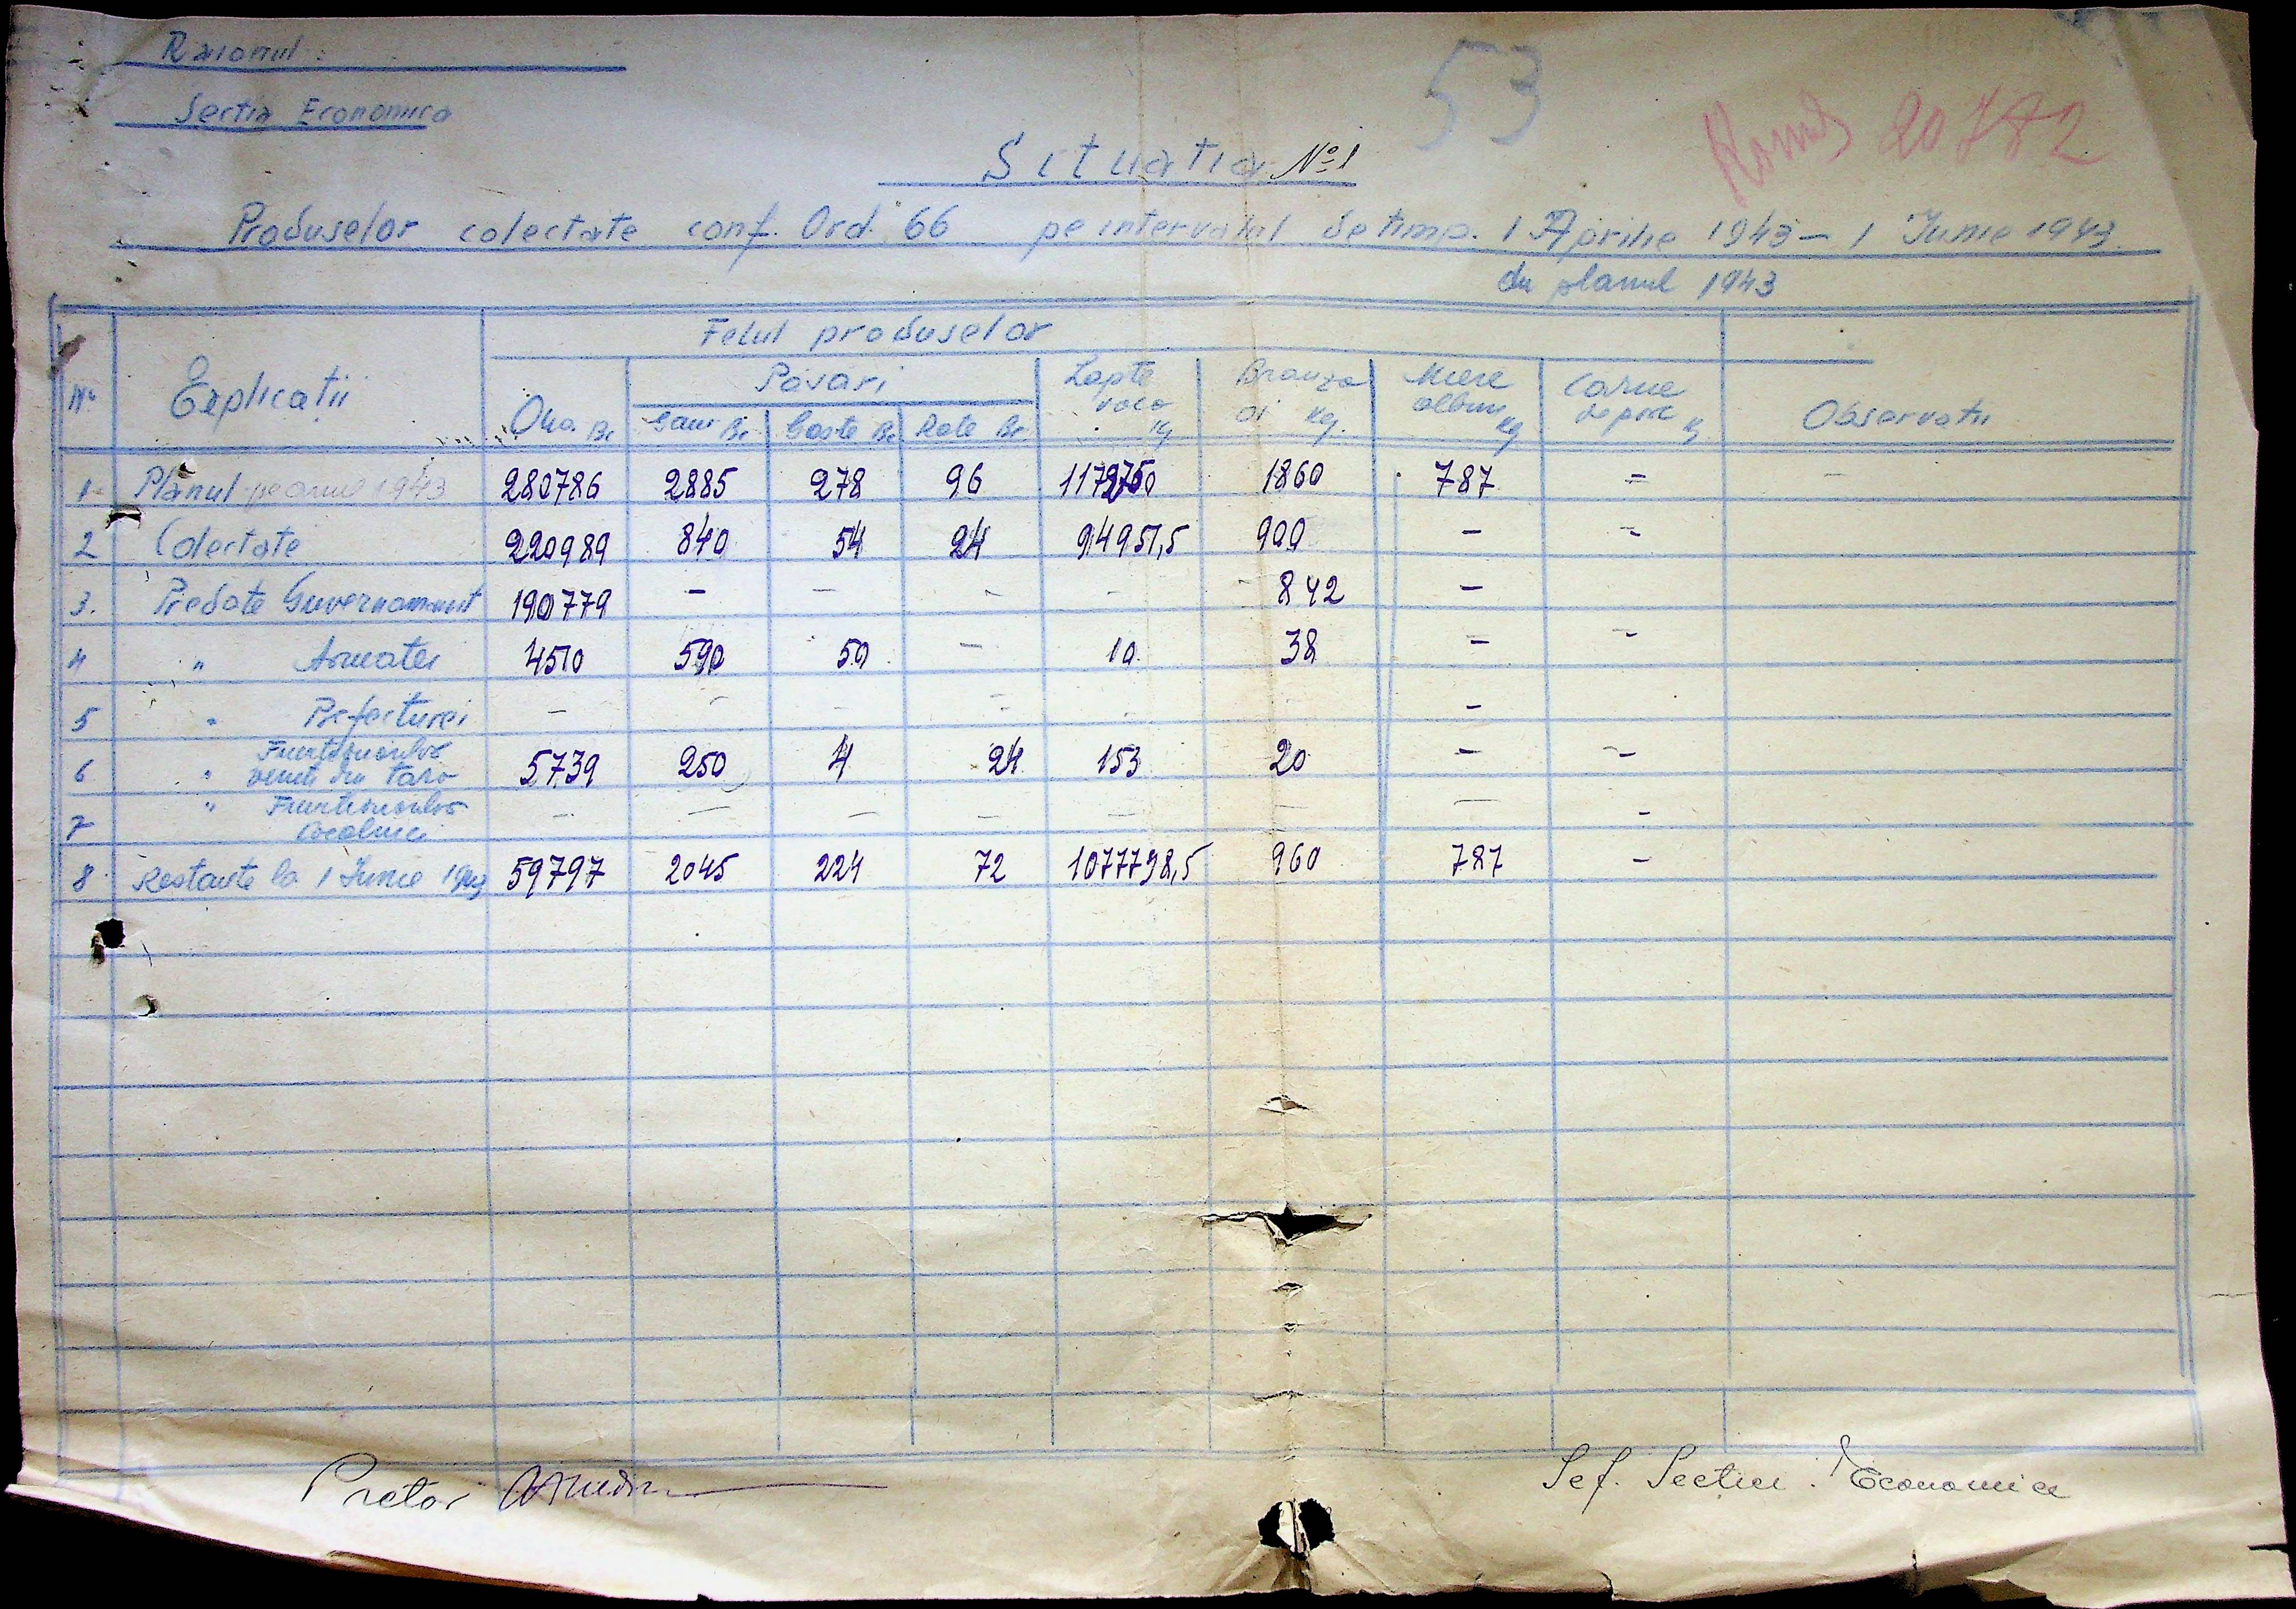 Raionul:
Sectia Economica
53
20782
Situatia No 1
Produselor colectate conf. Ord. 66 pe intervalul de timp. 1 Aprilie 1943 – 1 Iunie 1943.
din planul 1943
No Explicații Felul produselor Observatii
Oua Bc Păsări Lapte vaca Kg Branza oi Kg. Miere albine Kg Carne de porc Kg
Gaini Bc Gaste Bc Rate Bc
1 Planul pe anul 1943 280786 2885 278 96 1860 787 –
2 Colectate 220989 840 54 24 94951,5 900 – –
3. Predate Guvernamant 190779 – – – – 842 –
4 " Armatei 4510 590 50 – 10 38 – –
5 " Prefecturei – – – – – – –
6 " Functionarilor veniti din tara 5739 250 4 24 153 20 – –
7 " Functionarilor localnici – – – – – – – –
8 Restante la 1 Iunie 1943 59797 2045 224 72 1077798,5 960 787 –
Pretor
Sef. Sectiei Economice